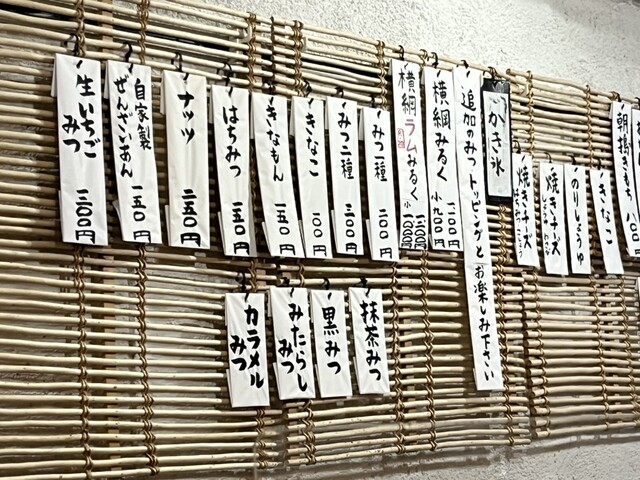 朝搗きもち
八〇〇円
きなこ
のりしょうゆ
焼きチーズ
焼きチーズ
かき氷
追加のみつ トッピングとお楽しみ下さい
横綱みるく
一一〇〇円
小 九〇〇円
横綱ラムみるく
小
みつ一種
一〇〇円
みつ二種
二〇〇円
きなこ
一〇〇円
きなもん
一五〇円
はちみつ
一五〇円
ナッツ
二五〇円
自家製
ぜんざいあん
一五〇円
生いちご
みつ
三〇〇円
抹茶みつ
黒みつ
みたらし
みつ
カラメル
みつ